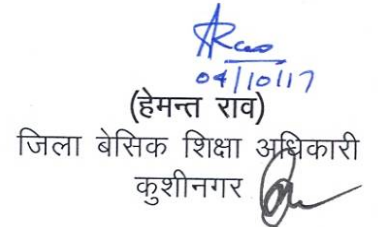 04/10/17
(हेमन्त राव)
जिला बेसिक शिक्षा अधिकारी
कुशीनगर